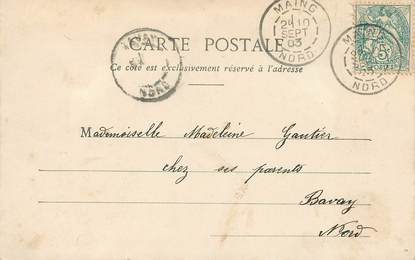 MAING
2E 10
SEPT
03
NORD
MAING
NORD
5
CARTE POSTALE
NORD
Ce côté est exclusivement réservé à l'adresse
Mademoiselle Madeleine Gautier
chez ses parents
Bavay
Nord